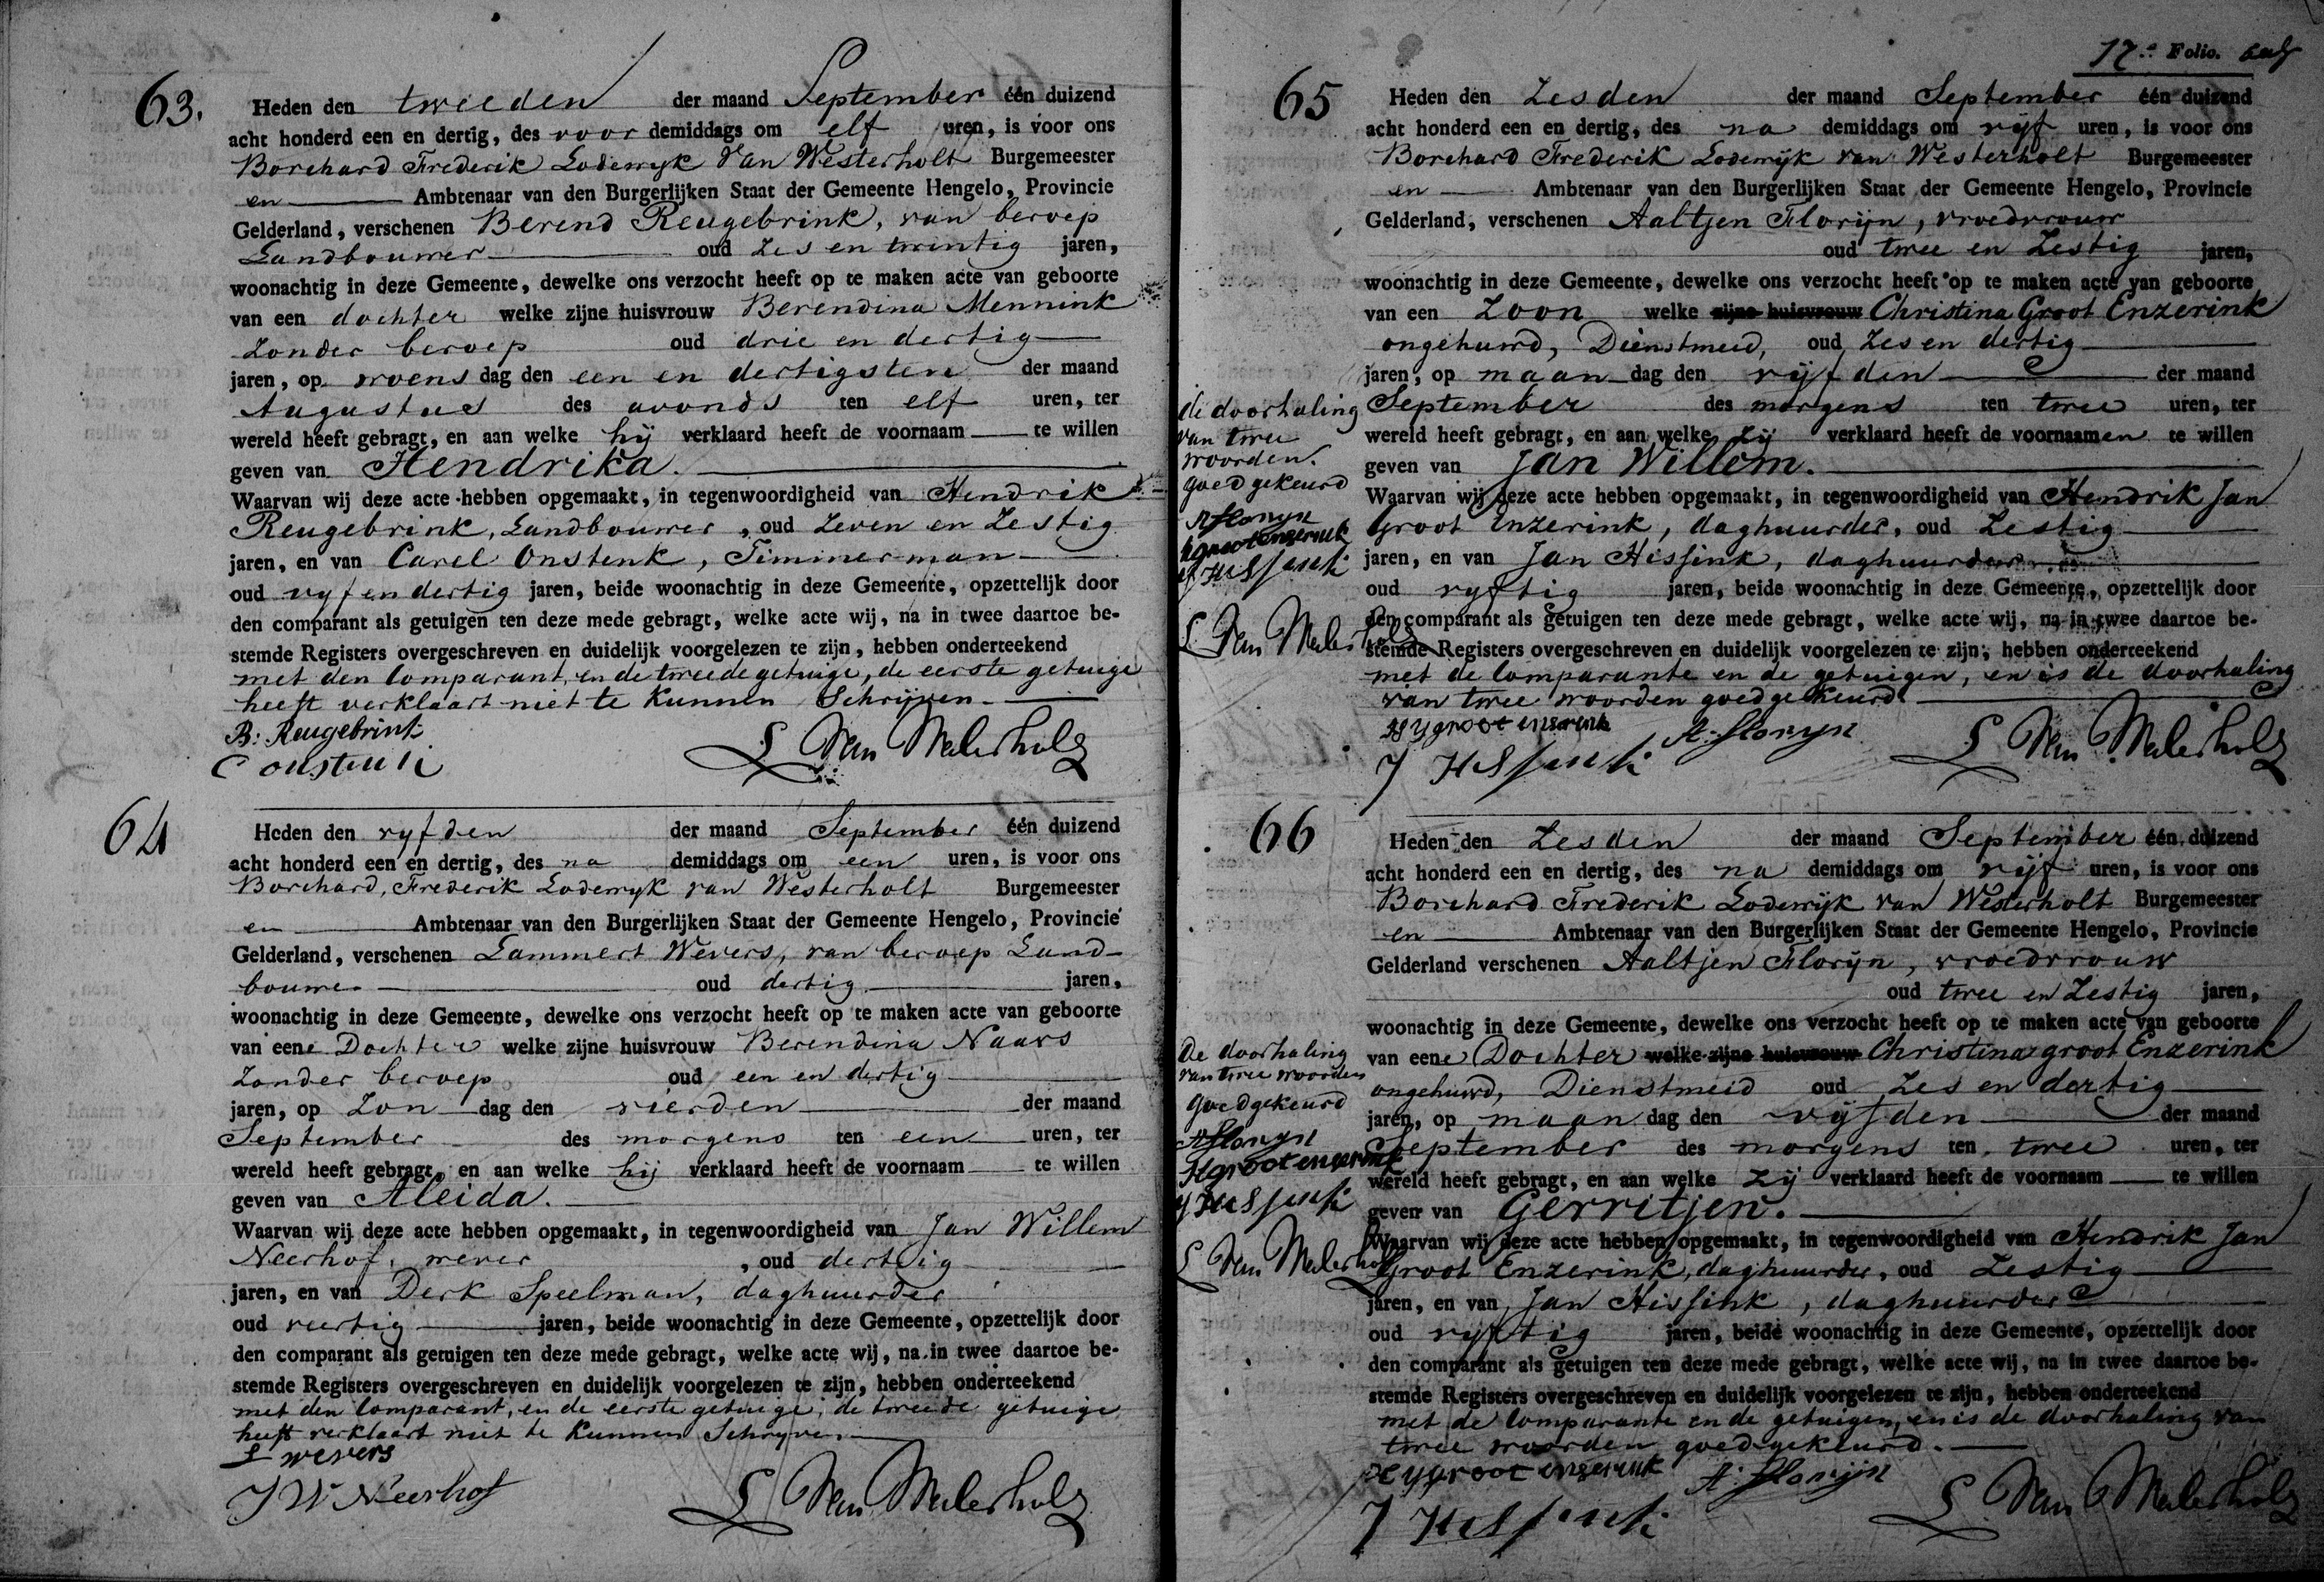 63.
Heden den tweeden der maand September één duizend
acht honderd een en dertig, des voor demiddags om elf uren, is voor ons
Borchard Frederik Lodewyk van Westerholt Burgemeester
en Ambtenaar van den Burgerlijken Staat der Gemeente Hengelo, Provincie
Gelderland, verschenen Berend Reugebrink, van beroep
Landbouwer oud Zes en twintig jaren,
woonachtig in deze Gemeente, dewelke ons verzocht heeft op te maken acte van geboorte
van een dochter welke zijne huisvrouw Berendina Mennink
Zonder beroep oud drie en dertig
jaren, op woens dag den een en dertigsten der maand
Augustus des avonds ten elf uren, ter
wereld heeft gebragt, en aan welke hij verklaard heeft de voornaam te willen
geven van Hendrika.
Waarvan wij deze acte hebben opgemaakt, in tegenwoordigheid van Hendrik
Reugebrink, Landbouwer, oud Zeven en Zestig
jaren, en van Carel Onstenk, Timmerman
oud vyf en dertig jaren, beide woonachtig in deze Gemeente, opzettelijk door
den comparant als getuigen ten deze mede gebragt, welke acte wij, na in twee daartoe be-
stemde Registers overgeschreven en duidelijk voorgelezen te zijn, hebben onderteekend
met den Comparant, en de tweede getuige, de eerste getuige
heeft verklaart niet te kunnen Schrijven.
B: Reugebrink
C onstenk
L Van Westerholt
64
Heden den vyfden der maand September één duizend
acht honderd een en dertig, des na demiddags om een uren, is voor ons
Borchard, Frederik Lodewyk van Westerholt Burgemeester
en Ambtenaar van den Burgerlijken Staat der Gemeente Hengelo, Provincie
Gelderland, verschenen Lammert Wevers, van beroep Land-
bouwer oud dertig jaren,
woonachtig in deze Gemeente, dewelke ons verzocht heeft op te maken acte van geboorte
van eene Dochter welke zijne huisvrouw Berendina Naars
Zonder beroep oud een en dertig
jaren, op Zon dag den vierden der maand
September des morgens ten een uren, ter
wereld heeft gebragt, en aan welke hij verklaard heeft de voornaam te willen
geven van Aleida.
Waarvan wij deze acte hebben opgemaakt, in tegenwoordigheid van Jan Willem
Neerhof, wever, oud dertig
jaren, en van Derk Speelman, daghuurder
oud veertig jaren, beide woonachtig in deze Gemeente, opzettelijk door
den comparant als getuigen ten deze mede gebragt, welke acte wij, na in twee daartoe be-
stemde Registers overgeschreven en duidelijk voorgelezen te zijn, hebben onderteekend
met den Comparant, en de eerste getuige, de tweede getuige
heeft verklaart niet te kunnen Schryven.
L wevers
J W Neerhof
L Van Westerholt
12.e Folio.
65
Heden den Zesden der maand September één duizend
acht honderd een en dertig, des na demiddags om vyf uren, is voor ons
Borchard Frederik Lodewijk van Westerholt Burgemeester
en Ambtenaar van den Burgerlijken Staat der Gemeente Hengelo, Provincie
Gelderland, verschenen Aaltjen Florijn, vroedvrouw
oud twee en Zestig jaren,
woonachtig in deze Gemeente, dewelke ons verzocht heeft op te maken acte van geboorte
van een Zoon welke zijne huisvrouw Christina Groot Enzerink
ongehuwd, Dienstmeid, oud Zes en dertig
jaren, op maan dag den vijfden der maand
September des morgens ten twee uren, ter
wereld heeft gebragt, en aan welke zij verklaard heeft de voornaamen te willen
geven van Jan Willem.
Waarvan wij deze acte hebben opgemaakt, in tegenwoordigheid van Hendrik Jan
Groot Enzerink, daghuurder, oud Zestig
jaren, en van Jan Hissink, daghuurder
oud vyftig jaren, beide woonachtig in deze Gemeente, opzettelijk door
den comparant als getuigen ten deze mede gebragt, welke acte wij, na in twee daartoe be-
stemde Registers overgeschreven en duidelijk voorgelezen te zijn, hebben onderteekend
met de Comparante en de getuigen, en is de doorhaling
van twee woorden goedgekeurd
H J groot enserink
A: florijn
J Hissink
L Van Westerholt
de doorhaling
van twee
woorden.
goedgekeurd
A florijn
H groot enserink
J Hissink
L Van Westerholt
66
Heden den Zesden der maand September één duizend
acht honderd een en dertig, des na demiddags om vijf uren, is voor ons
Borchard Frederik Lodewijk van Westerholt Burgemeester
en Ambtenaar van den Burgerlijken Staat der Gemeente Hengelo, Provincie
Gelderland verschenen Aaltjen Florijn, vroedvrouw
oud twee en Zestig jaren,
woonachtig in deze Gemeente, dewelke ons verzocht heeft op te maken acte van geboorte
van eene Dochter welke zijne huisvrouw Christina groot Enzerink
ongehuwd, Dienstmeid oud Zes en dertig
jaren, op maan dag den vijfden der maand
September des morgens ten twee uren, ter
wereld heeft gebragt, en aan welke zij verklaard heeft de voornaam te willen
geven van Gerritjen.
Waarvan wij deze acte hebben opgemaakt, in tegenwoordigheid van Hendrik Jan
Groot Enzerink, daghuurder, oud Zestig
jaren, en van Jan Hissink, daghuurder
oud vyftig jaren, beide woonachtig in deze Gemeente, opzettelijk door
den comparant als getuigen ten deze mede gebragt, welke acte wij, na in twee daartoe be-
stemde Registers overgeschreven en duidelijk voorgelezen te zijn, hebben onderteekend
met de Comparante en de getuigen, en is de doorhaling van
twee woorden goedgekeurd.
H J groot enserink
A: florijn
J Hissink
L Van Westerholt
De doorhaling
van twee woorden
goedgekeurd
A florijn
H groot enserink
J Hissink
L Van Westerholt